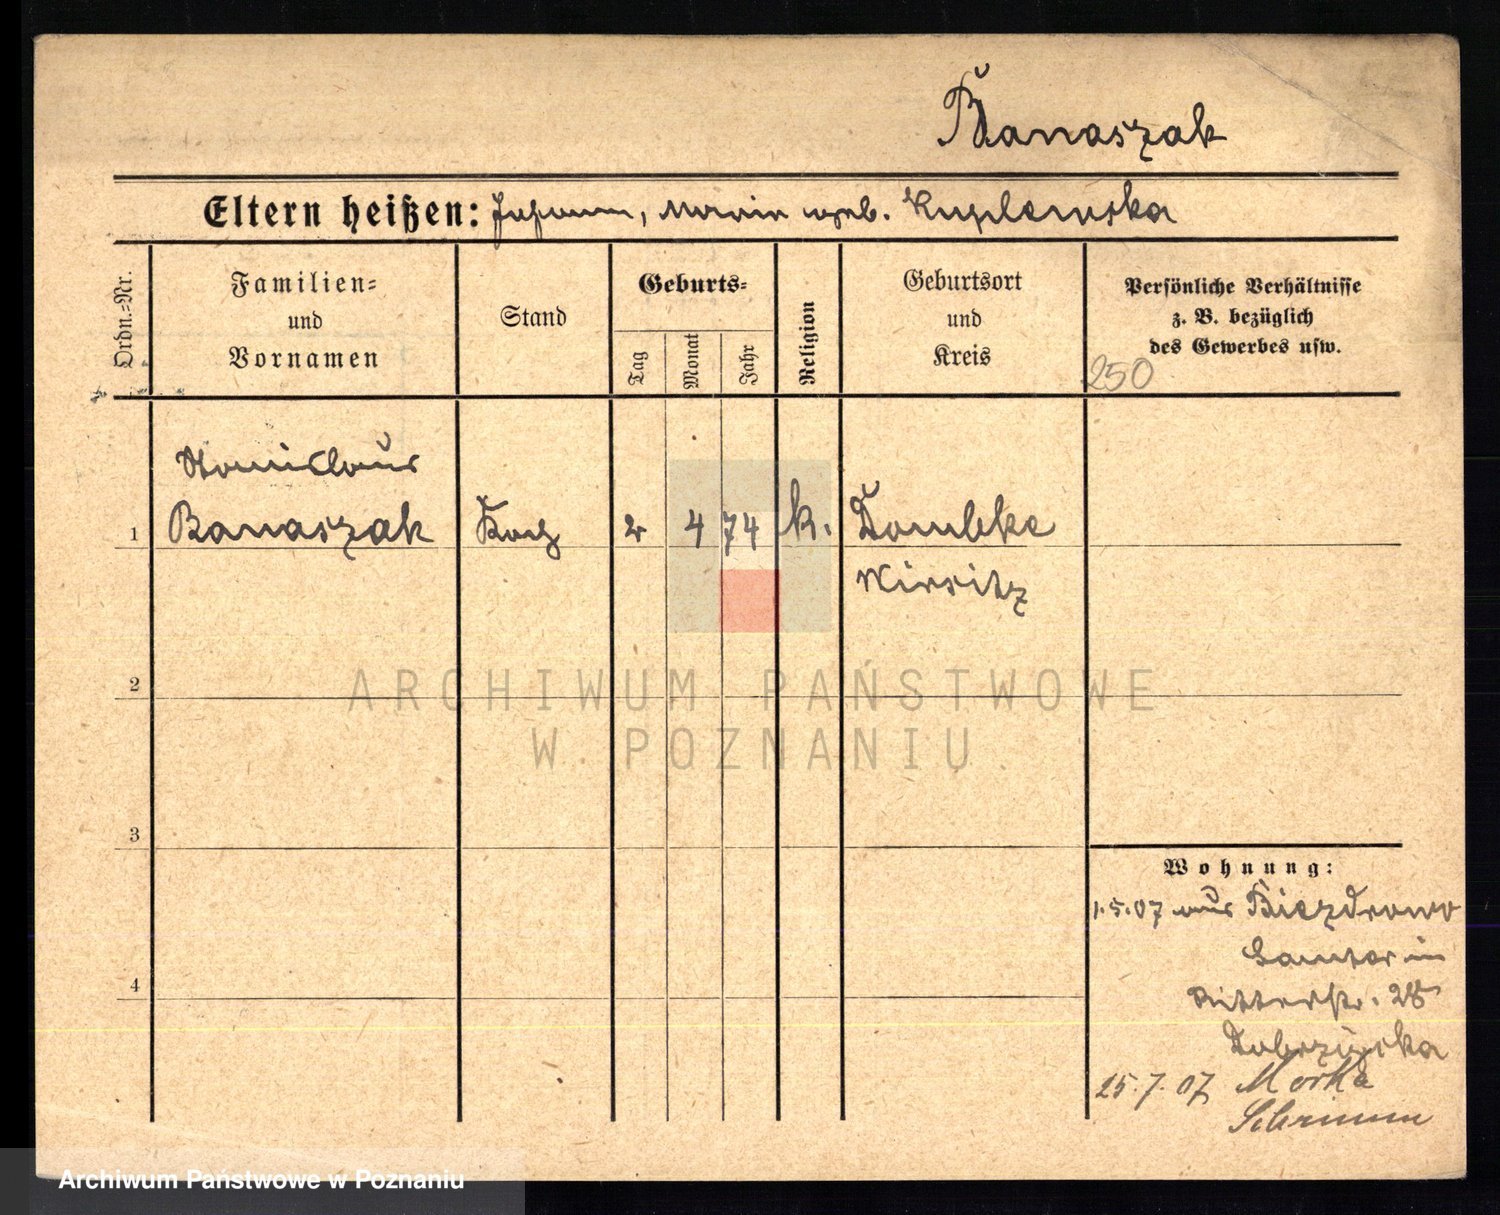 Banaszak
Eltern heißen: Johann, Maria geb.
Ordn.-Nr.
Familien-
und
Vornamen
Stand
Geburts-
Tag
Monat
Jahr
Religion
Geburtsort
und
Kreis
Persönliche Verhältnisse
z. B. bezüglich
des Gewerbes usw.
250
Stanislaus
1 Banaszak Koch 2 4 74 k. Dombke
Wirsitz
2
ARCHIWUM PAŃSTWOWE
W POZNANIU
3
Wohnung:
1.5.07 aus Biezdrowo
Samter in
4
Ritterstr. 28
25.7.07 Morka
Schrimm
Archiwum Państwowe w Poznaniu